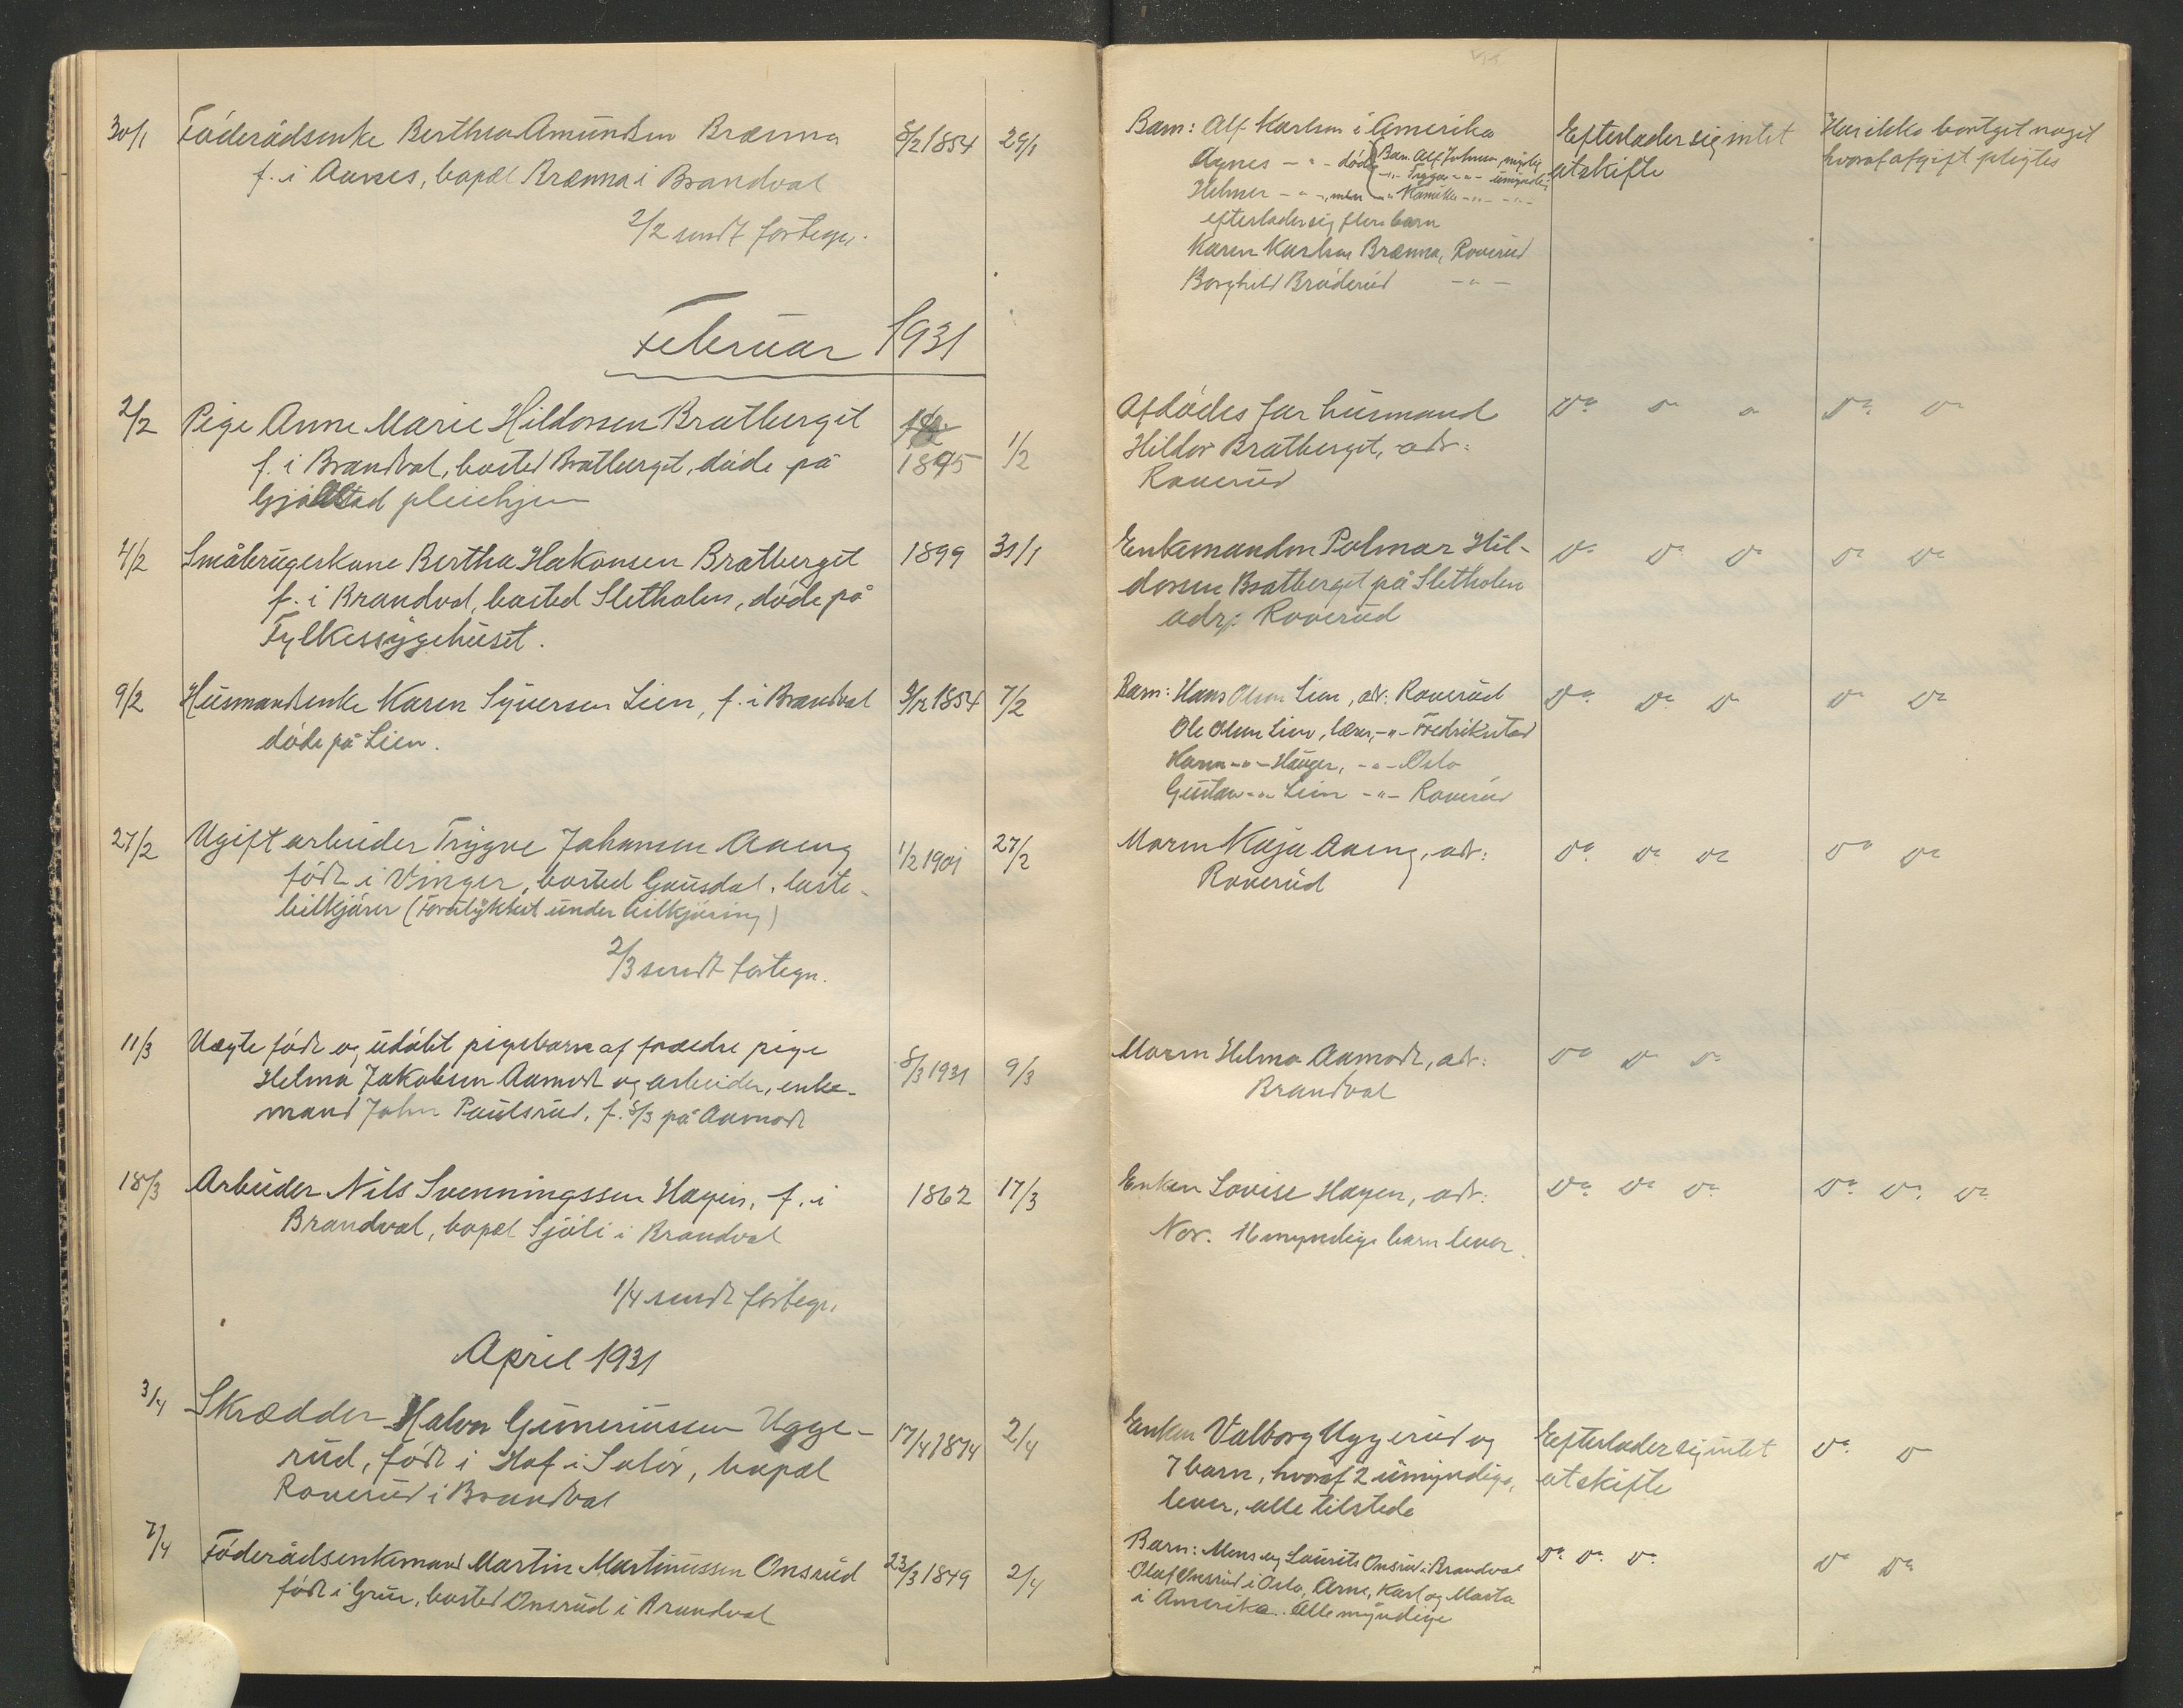 30/1 Föderådsenke Bertha Amundsen Brænna 8/2 1854 29/1
f. i Aasnes, bopæl Brænna i Brandval
2/2 sendt fortegn.
Februar 1931
2/2 Pige Anne Marie Hildorsen Bratberget
f. i Brandval, bosted Bratberget, döde på 1895 1/2
pleiehjem
4/2 Småbrugerkone Bertha Hakonsen Bratberget 1899 31/1
f. i Brandval, bosted Sletholen, döde på
Fylkessygehuset.
9/2 Husmandsenke Karen Syversen Lien, f. i Brandval 3/12 1854 7/2
döde på Lien.
27/2 Ugift arbeider Trygve Johansen Aaeng 1/2 1901 27/2
född i Vinger, bosted Gausdal, laste-
bilkjörer (Forulykket under bilkjöring)
2/3 sendt fortegn.
11/3 Uægte född og udöbt pigebarn af forældre pige
Helma Jakobsen Aamodt og arbeider, enke- 8/3 1931 9/3
mand John Paulsrud, f. 8/3 på Aamodt
18/3 Arbeider Nils Svenningssen Hagen, f. i 1862 17/3
Brandval, bopæl Sjöli i Brandval
1/4 sendt fortegn.
April 1931
3/4 Skrædder Halvor Guneriussen Ugge- 17/4 1874 2/4
rud, född i Hof i Solör, bopæl
Roverud i Brandval
7/4 Föderådsenkemand Martin Martinussen Onsrud 23/3 1849 2/4
född i Grue, bosted Onsrud i Brandval
Barn: Alf Karlsen i Amerika Efterlader sig intet Har ikke bortget noget
Agnes -"- död Barn Alf Johnsen myndig at skifte hvoraf afgift pligtes
-"- Trygve -"- umyndig
Helmer -"-, men -"- Kamilla -"- -"-
efterlader sig flere barn
Karen Karlsen Brænna, Roverud
Borghild Bruderud -"-
Afdödes far husmand Do Do Do Do Do
Hildor Bratberget, adr:
Roverud
Enkemanden Palmar Hil- Do Do Do Do Do
dorsen Bratberget på Sletholen
adr: Roverud
Barn: Hans Olsen Lien, adr: Roverud Do Do Do Do Do
Ole Olsen Lien, lærer, -"- Fredrikstad
Karen -"- Hauger, -"- Oslo
Gustav -"- Lien -"- Roverud
Moren Kaja Aaeng, adr: Do Do Do Do Do
Roverud
Moren Helma Aamodt, adr: Do Do Do
Brandval
Enken Lovise Hagen, adr: Do Do Do Do Do Do
Nor. 16 myndige barn lever.
Enken Valborg Uggerud og Efterlader sig intet Do Do
7 barn, hvoraf 2 umyndige, at skifte
lever, alle tilstede
Barn: Mons og Laurits Onsrud i Brandval Do Do Do Do Do
Olaf Onsrud i Oslo, Arne, Karl og Marta
i Amerika. Alle myndige